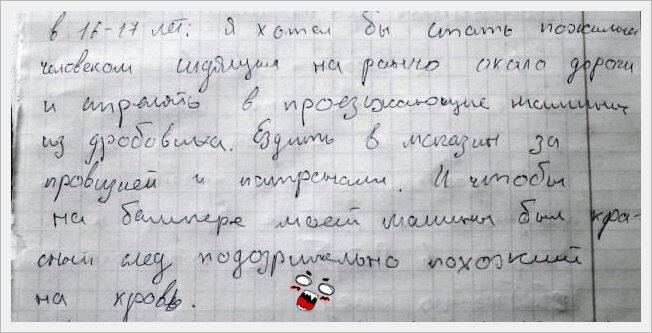 в 16-17 лет: Я хотел бы стать пожилым
человеком сидящим на ранчо окало дороги
и стрелять в проезжающие машины
из дробовика. Ездить в магазин за
провизией и патронами. И чтобы
на бампере моей машины был кра-
сный след подозрительно похожий
на кровь.